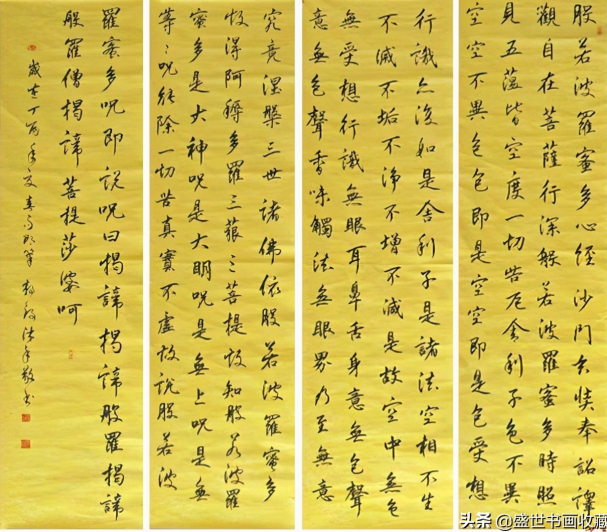 般若波羅蜜多心經沙門玄奘奉詔譯
觀自在菩薩行深般若波羅蜜多時照
見五蘊皆空度一切苦厄舍利子色不異
空空不異色色即是空空即是色受想
行識亦復如是舍利子是諸法空相不生
不滅不垢不淨不增不減是故空中無色
無受想行識無眼耳鼻舌身意無色聲
意無色聲香味觸法無眼界乃至無意
究竟涅槃三世諸佛依般若波羅蜜多
故得阿耨多羅三藐三菩提故知般若波羅
蜜多是大神呪是大明呪是無上呪是無
等々呪能除一切苦真實不虛故說般若波
羅蜜多呪即說呪曰揭諦揭諦般羅揭諦
般羅僧揭諦菩提莎婆呵
歲在丁酉年 敬書
头条 @盛世书画收藏